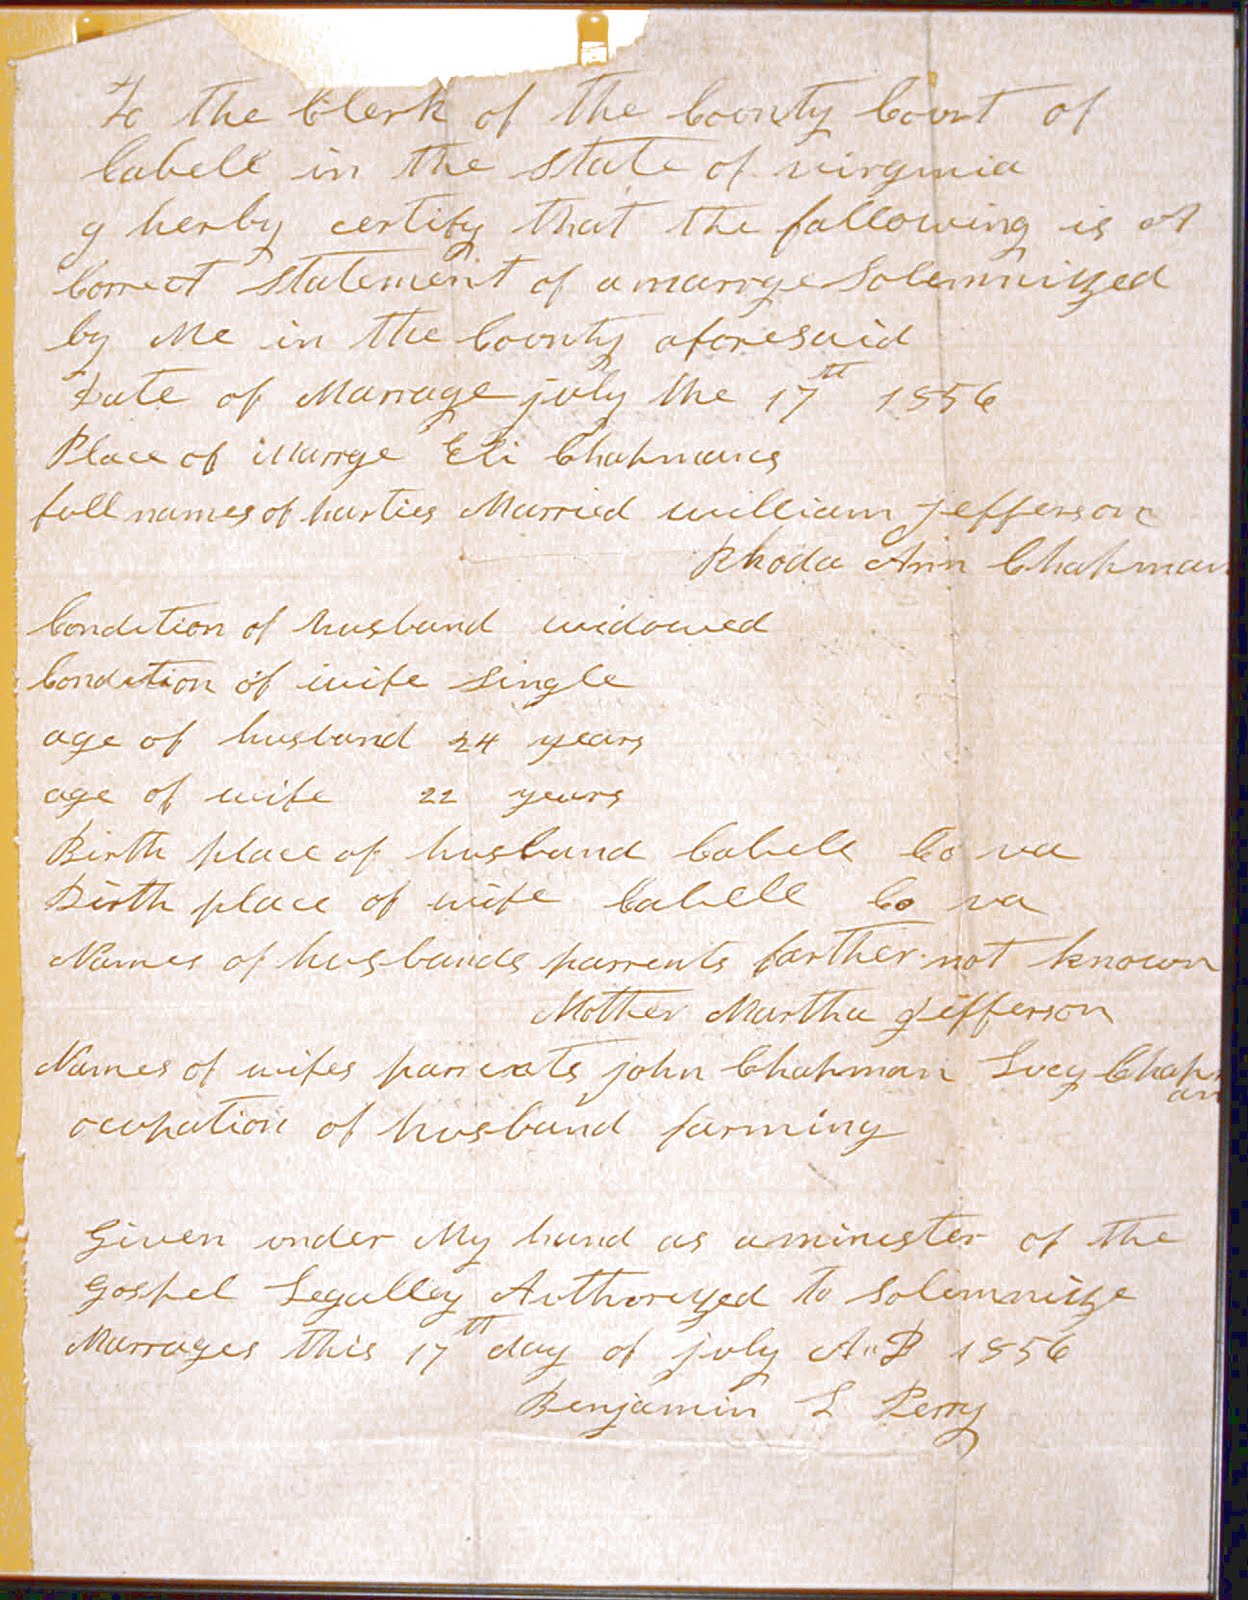 To the Clerk of the County Court of
Cabell in the State of virginia
I herby certify that the following is A
Correct Statement of a marrge Solemnized
by Me in the County aforesaid
Date of Marrage july the 17th 1856
Place of Marrge Eli Chapmans
full names of parties Married william jefferson
Rhoda Ann Chapman
Condition of husband widowed
Condition of wife Single
age of husband 24 years
age of wife 22 years
Birth place of husband Cabell Co va
Birth place of wife Cabell Co va
Names of husbands parrents farther not known
Mother Martha Jefferson
Names of wifes parrents john Chapman Lucy Chapm
an
ocupation of husband farming
Given under My hand as a minister of the
Gospel Legalley Authorized to Solemnize
Marrages this 17th day of july A"D 1856
Benjamin L Perry